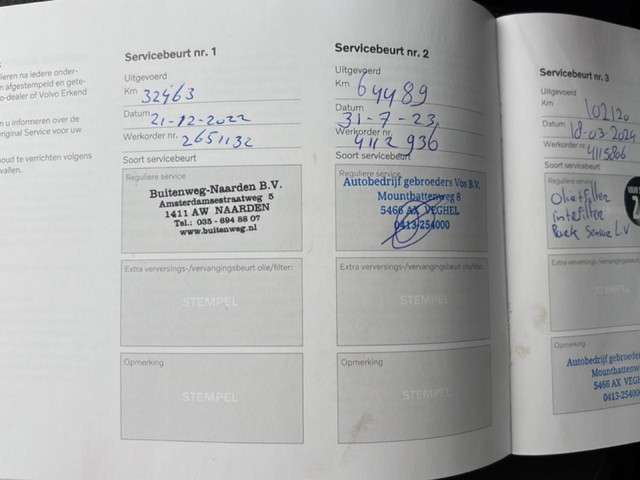 lieren na iedere onder-
n afgestempeld en gete-
o-dealer of Volvo Erkend
n u informeren over de
riginal Service voor uw
houd te verrichten volgens
vallen.
Servicebeurt nr. 1
Uitgevoerd
Km 32463
Datum 21-12-2022
Werkorder nr. 2651132
Soort servicebeurt
Reguliere service
Buitenweg-Naarden B.V.
Amsterdamsestraatweg 5
1411 AW NAARDEN
Tel.: 035 - 694 88 07
www.buitenweg.nl
Extra verversings-/vervangingsbeurt olie/filter:
STEMPEL
Opmerking
STEMPEL
Servicebeurt nr. 2
Uitgevoerd
Km 64489
Datum 31-7-23
Werkorder nr. 4112936
Soort servicebeurt
Reguliere service
Autobedrijf gebroeders Vos B.V.
Mountbattenweg 8
5466 AX VEGHEL
0413-254000
Extra verversings-/vervangingsbeurt olie/filter:
STEMPEL
Opmerking
STEMPEL
Servicebeurt nr. 3
Uitgevoerd
Km 102120
Datum 18-03-2024
Werkorder nr. 4115806
Soort servicebeurt
Reguliere service
Extra verversings-/vervangingsb
STEM
Opmerking
Autobedrijf gebroeders
Mountbattenweg
5466 AX VEGHEL
0413-254000